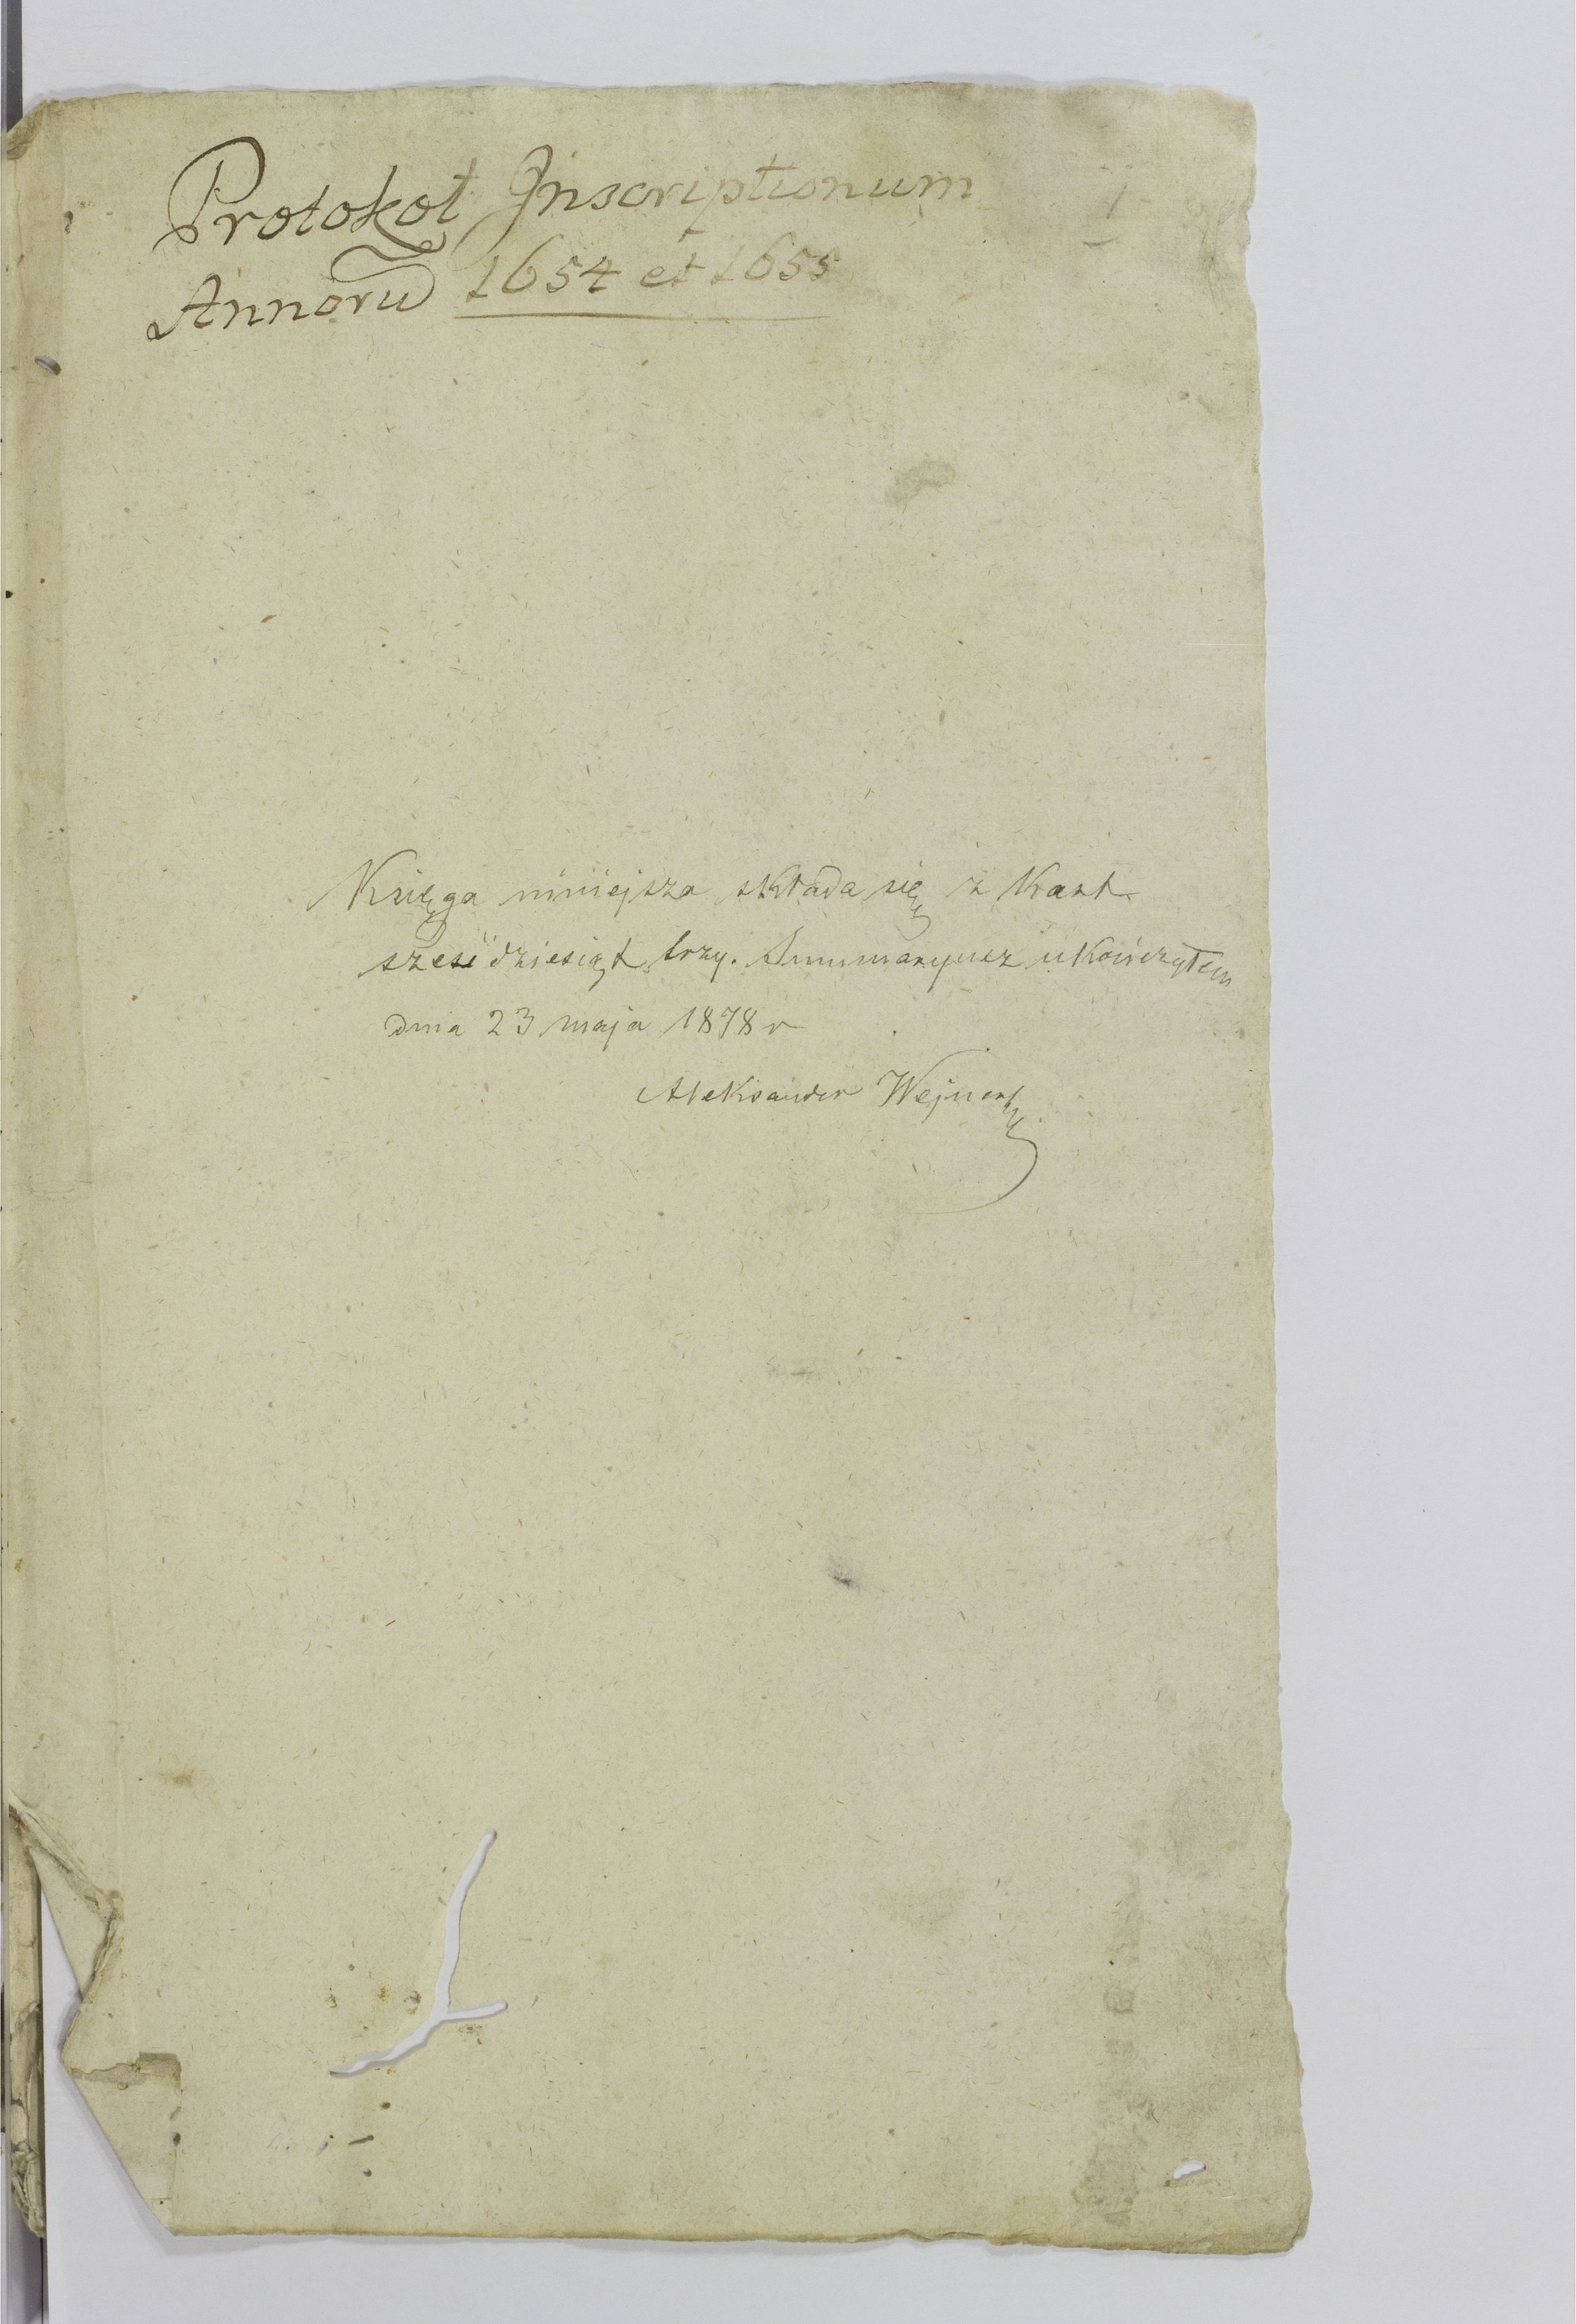 Protokoł Inscriptionum
Annoru 1654 et 1655
Księga niniejsza składa się z Kart
sześćdziesiąt trzy. Summaryusz ukończyłem
dnia 23 maja 1878 r
Aleksander Wejnert